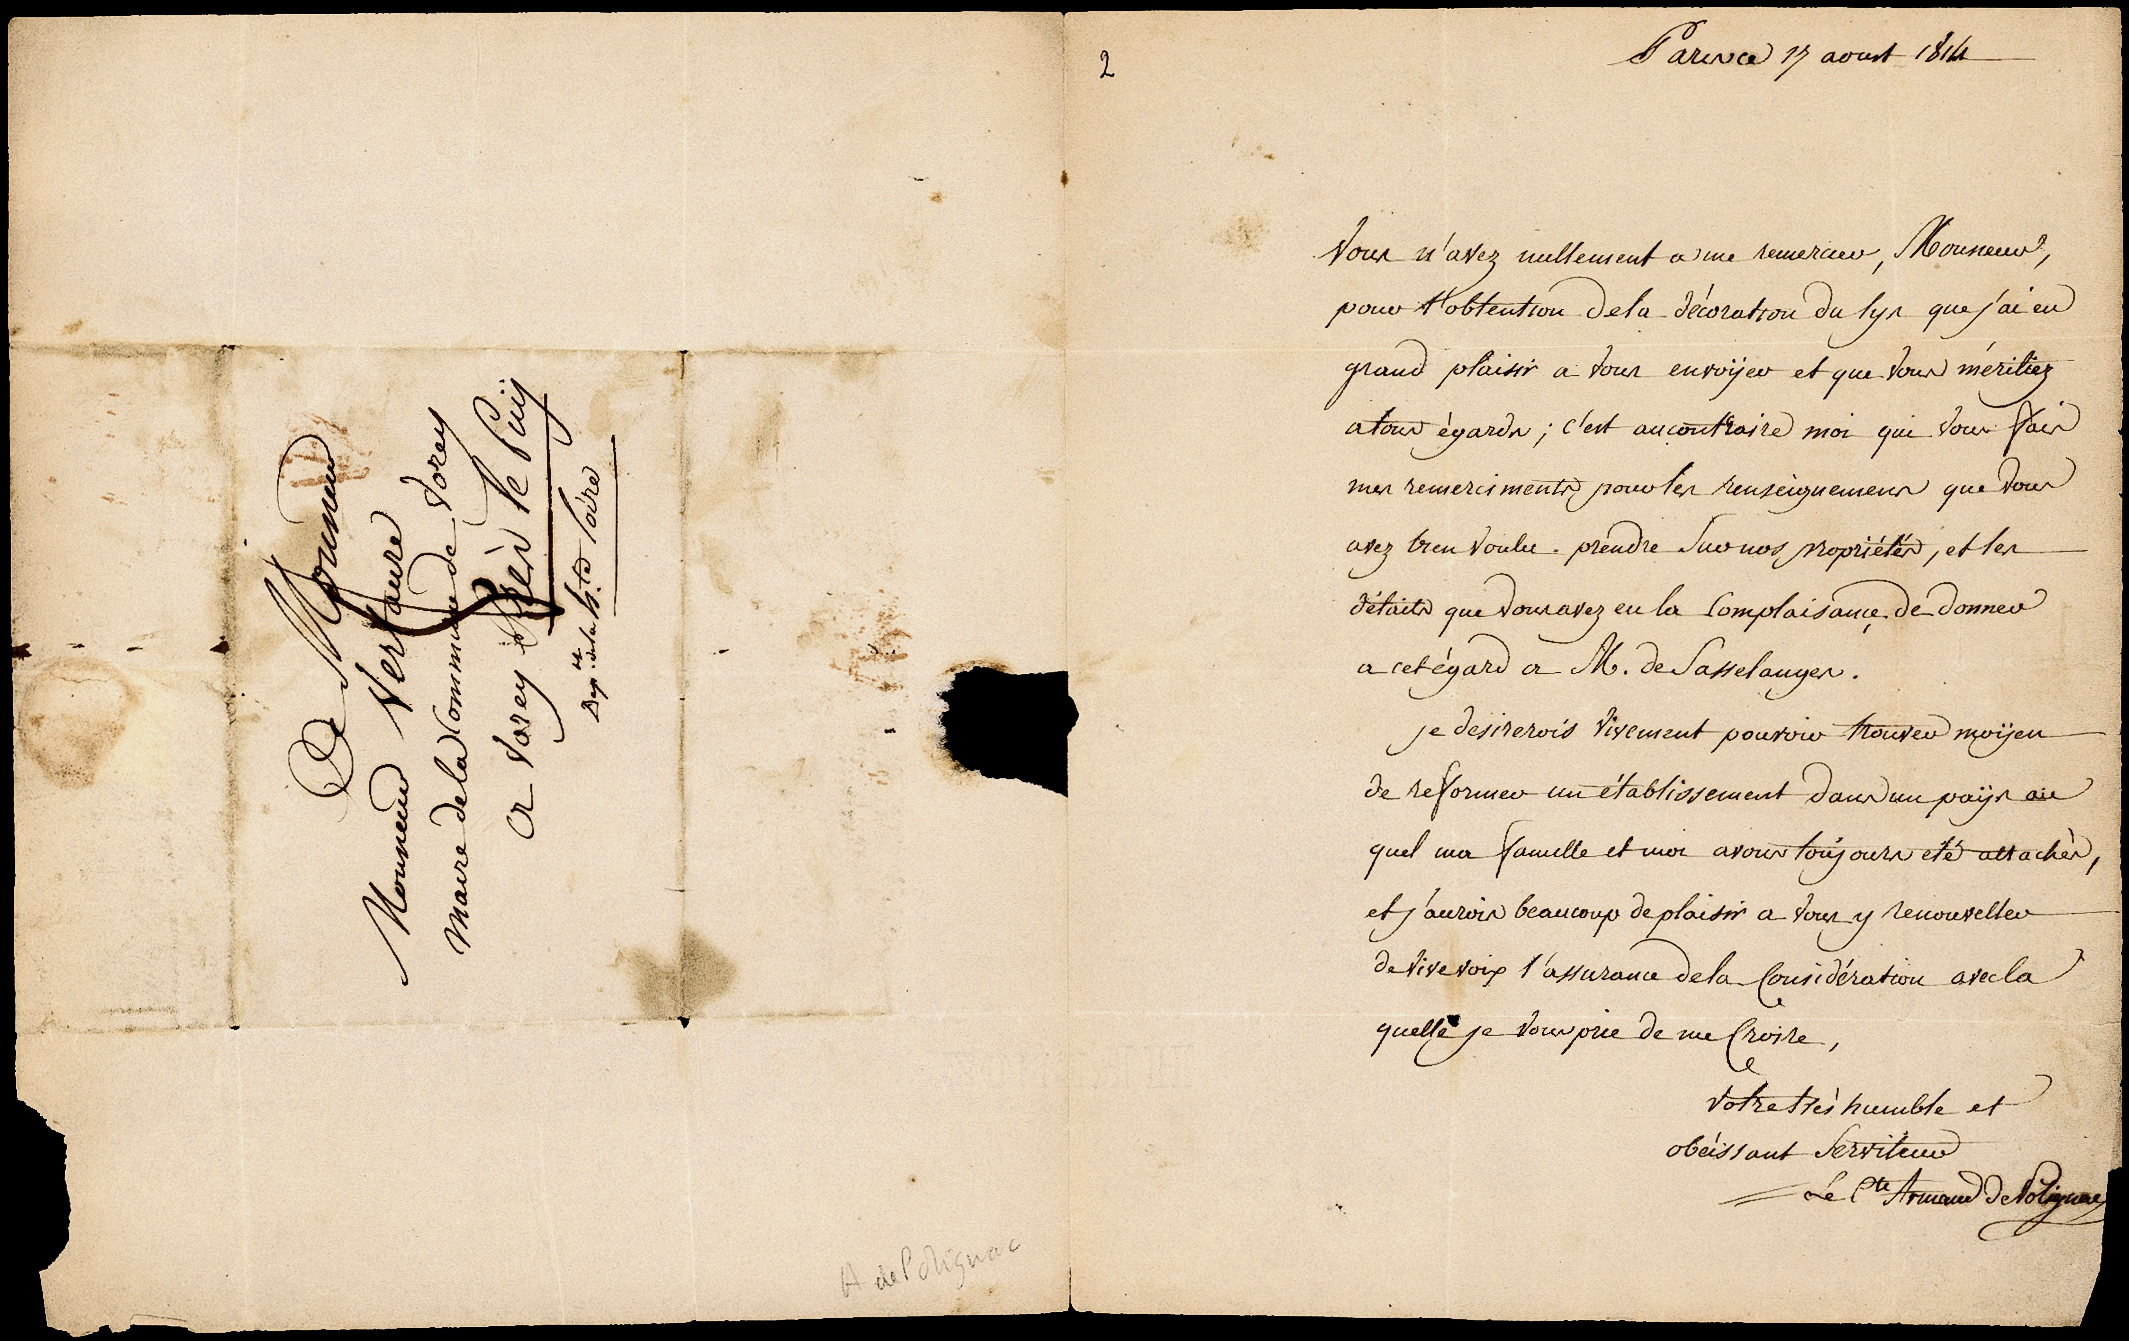 A
Monsieur
Monsieur Vertaure
Maire de la Commune de Vorey
a Vorey près le Puy
Dépt. de la hte Loire
A de Polignac
2
Paris ce 17 aoust 1814
Vous n'avez nullement a me remercier, Monsieur,
pour l'obtention de la décoration du lys que j'ai eu
grand plaisir a vous envoÿer et que vous méritiez
a tous égards ; c'est au contraire moi qui vous fais
mes remerciments pour les renseignemens que vous
avez bien voulu prendre sur nos propriétés, et les
détails que vous avez eu la Complaisance de donner
a cet égard a M. de Sasselanges.
je desirerois vivement pouvoir trouver moÿen
de reformer un établissement dans un paÿs au
quel ma famille et moi avons toujours eté attachés,
et j'aurois beaucoup de plaisir a vous y renouveller
de vive voix l'assurance de la Considération avec la
quelle je vous prie de me Croire,
Votre très humble et
obéissant Serviteur
Le Cte Armand de Polignac